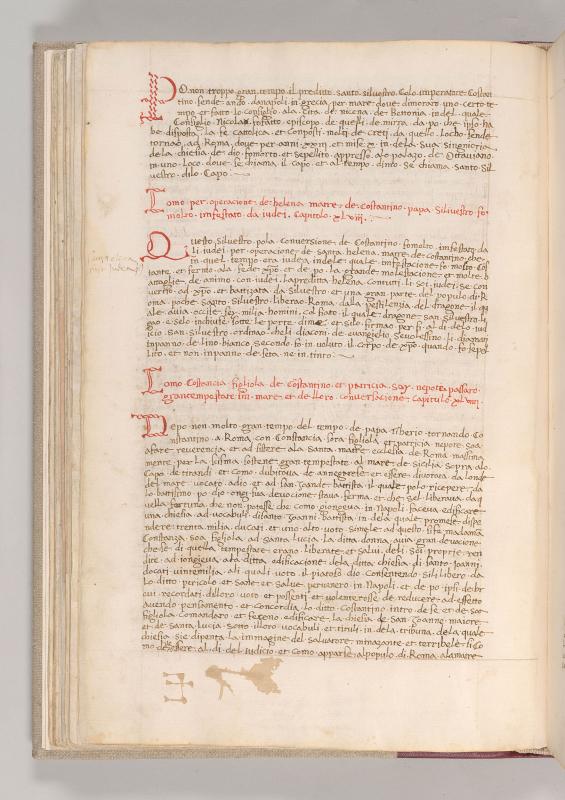 Po non troppo gran tempo il preditto santo silvestro colo imperatore Costan
tino sende ando da napoli in grecia per mare dove dimoraro uno certo te
mpo et fatto lo consiglio ala cita de nicena de Bettonia in del quale
Consiglio Nicolao fo fatto episcopo de quessi de mirra da po che ipso ha
be disposta la fe cattolica et composti molti de creti da quello locho sende
tornao ad Roma dove per anni xxiii et mise x in dela sua singnioria
de la chiesa de dio fo morto et sepellito appresso alo palazo de Ottaviano
in uno loco dove se chiama il capo et al tempo dinto se chiama santo Sil
vestro dilo Capo
Como per operacione de helena matre de Costantino papa Silvestro fo
molto imfestato da iudei Capitolo xlviii
Questo Silvestro pola conversione de Costantino fo molto imfestato da
li iudei per operacione de santa helena matre de costantino che
in quel tempo era iudea in dele quale imfestacione fo molto cos
tante et fermo ala fede xpo et de po la grande molestacione et molte b
attaglie de animo con iudei la preditta helena con tutti li soi iudei se con
vertio ad xpo et battizata da Silvestro et una gran parte del populo di R
oma poche Santo Silvestro liberao Roma dalla pestilencia del dragone il qu
ale avia occise sex milia homini co fiato il quale dragone san Silvestro li
gao e selo inchiuse sotto le porte et silo firmao per fi al di delo iud
icio San Silvestro ordinao che li diaconi de evangelio se vestessino li diaconi
in panno de lino bianco secondo fo in voluto il corpo de xpo quando fo sepel
lito et non in panno de seta ne in tinto
Como Costancia figliola de Costantino et patricia Soy nepote passaro
gran tempestate im mare et de lloro conversacione Capitulo xlviiii
Depo non molto gran tempo del tempo de papa tiberio tornando Co
nstantino a Roma con Constancia sora figliola et patricia nepote soa
a fare reverencia et ad fistere ala Santa matre ecclesia de Roma massina
mente per la sostene gran tempestate al mare de Sicilia sopra alo
Capo de tirandi et como dubitava de annegarese et essere divorata da londe
del mare vocato adio et ad san Joande battista il quale polo ricepere da
lo battismo po dio ongi sua devocione stava ferma et che sel liberava da q
vella fortuna che non potesse che como giongeva in napoli faceva edificare
una chiesa ad vocabuli di santo Joanni battista in dela quale promese dispe
ndere trenta milia ducati et uno alto voto simele ad questo fece madama
Constanza soa figliola ad santa lucia la ditta donna avia gran devocione
che se di quella tempestate erano liberate et salvi deli soi proprie ren
dite ad iongieva ala ditta edificacione dela ditta chiesa di santo Joanni
docati vinte milia ali quali voti il piatoso dio consentendo sili libero da
lo ditto pericolo et sane et salve pervenero in Napoli et de po ipsi de br
evi recordati di lloro voti et possenti et volenterosse de reducere ad effetto
avendo pensamento et concordia lo ditto costantino intro de se et de soa
figliola comandaro et fecero edificare la chiesa de san Joanne maiore
et de santa lucia sotto illoro vocabuli et tituli in dela tribuna dela quale
chiesia sie dipenta la immagine del salvatore minazante et terribele si co
mo de essere al di del iudicio et como apparse al populo di Roma ala matre